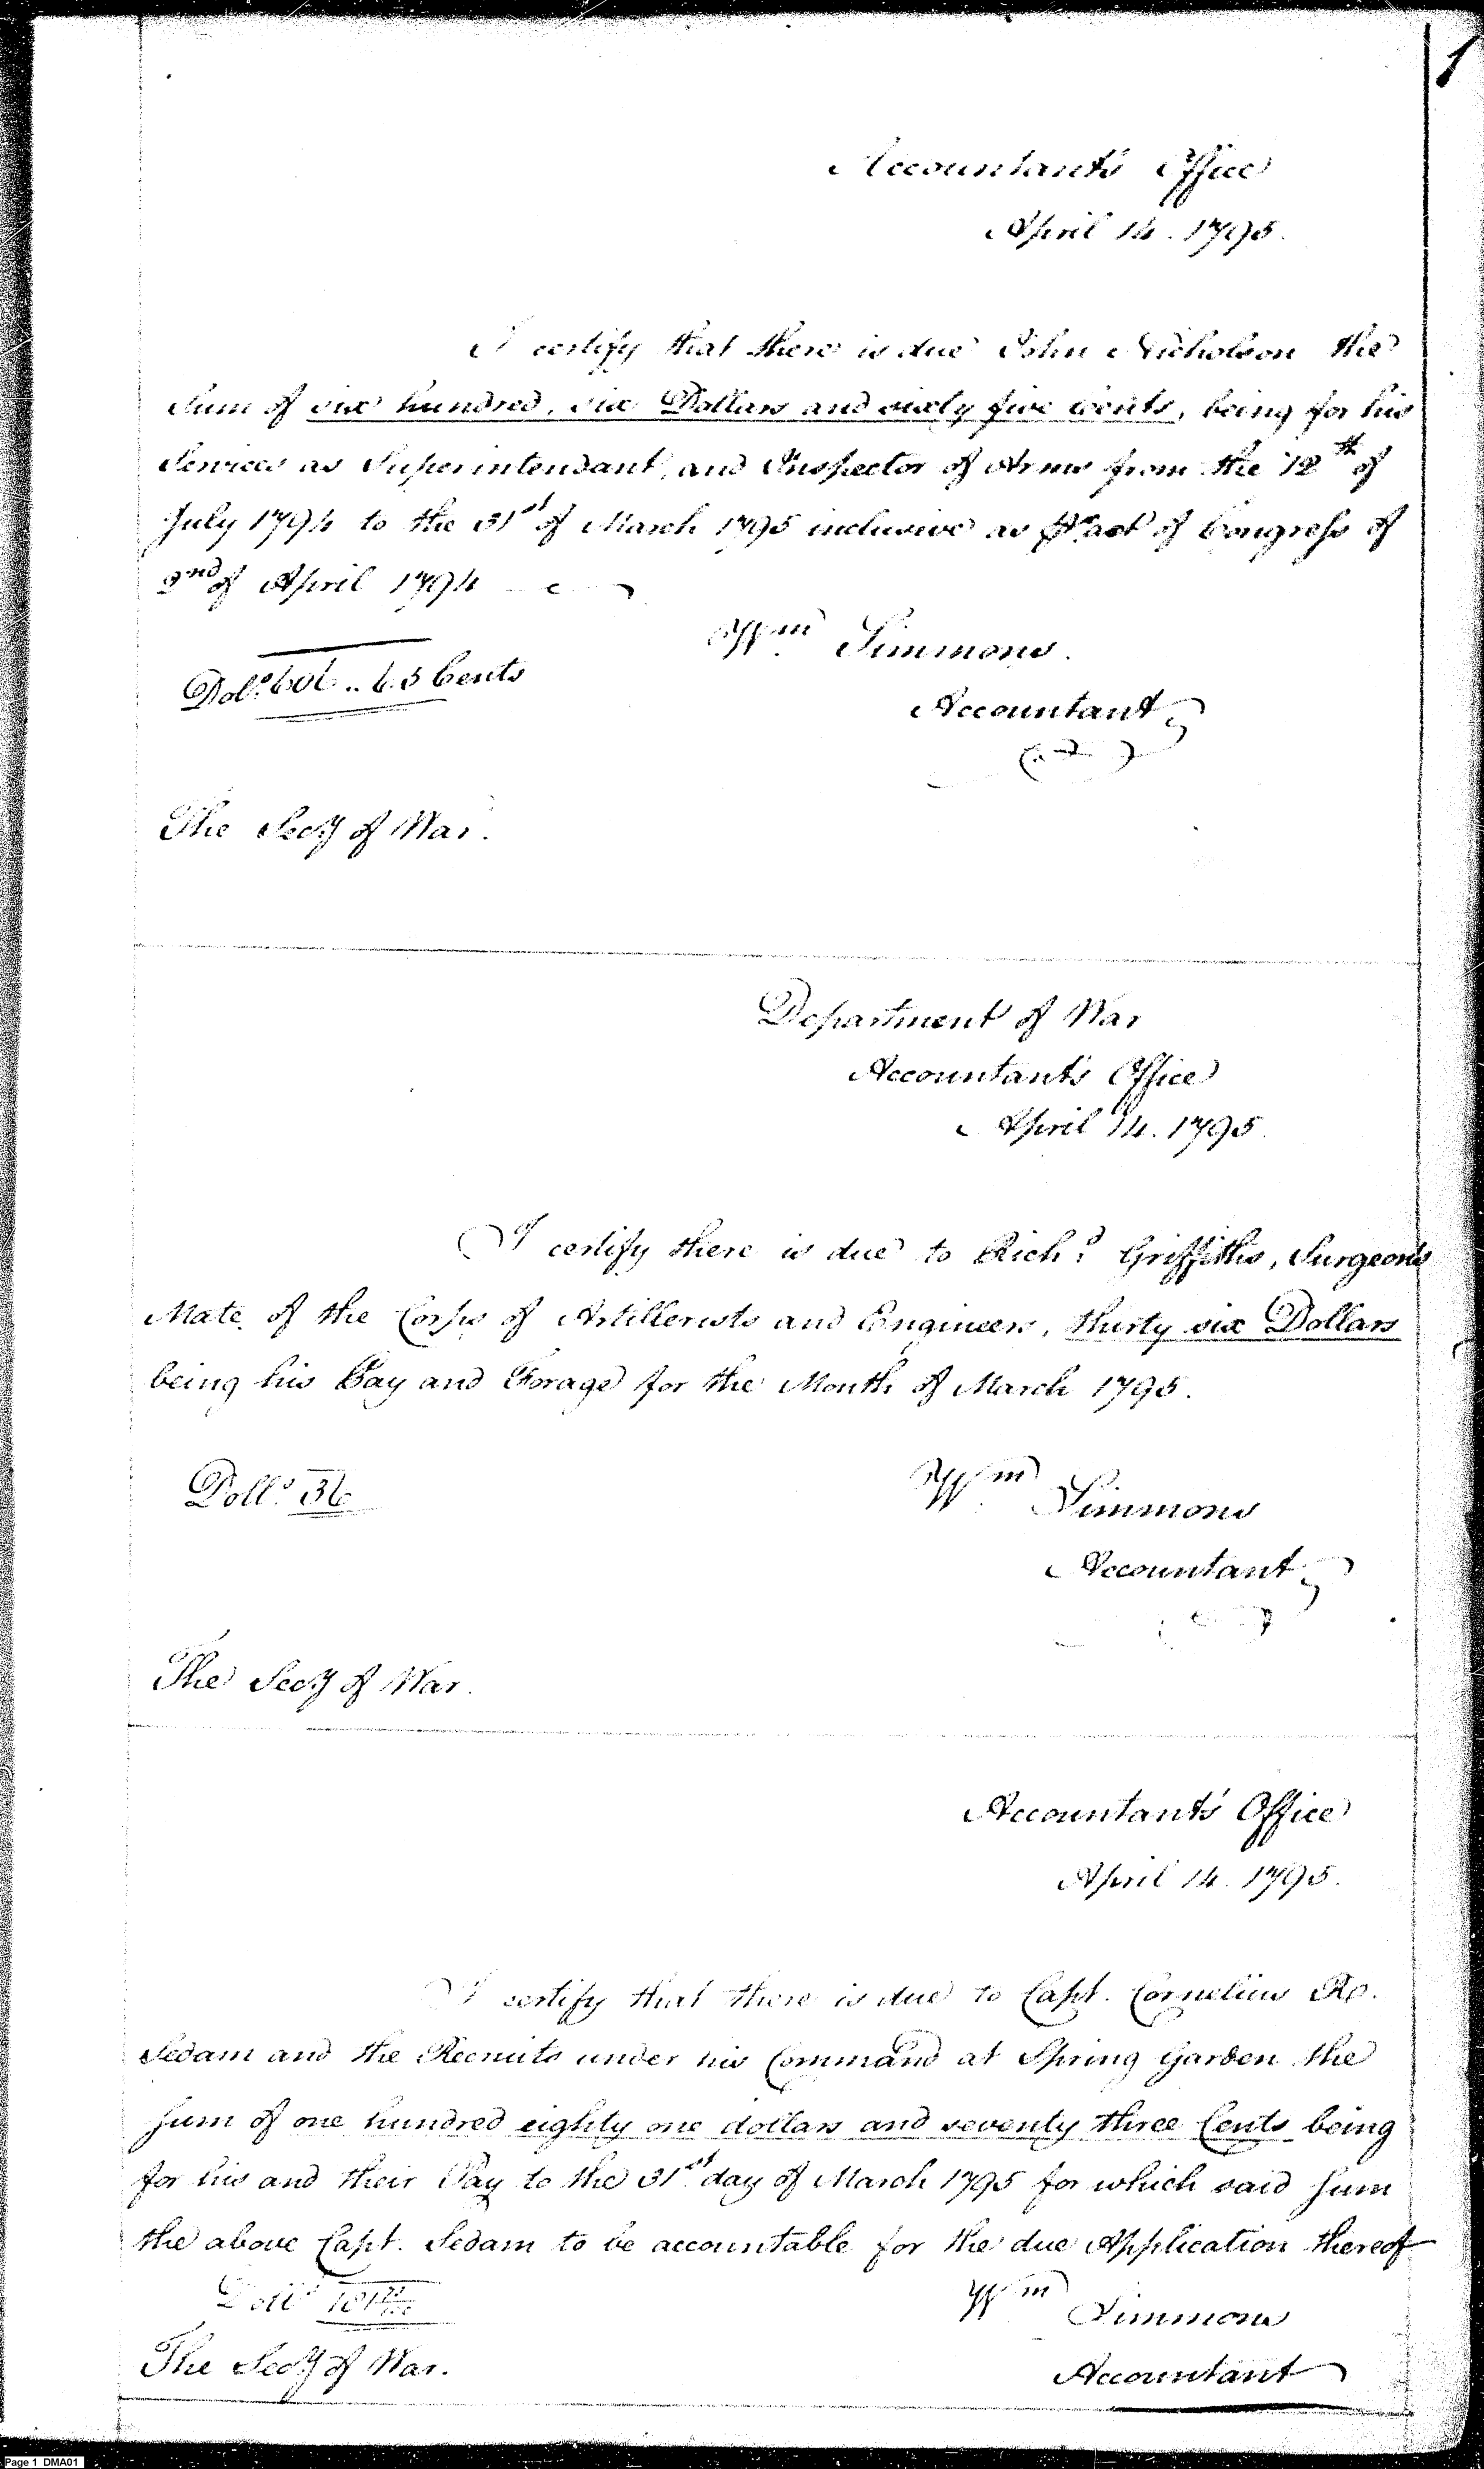 1
Accountant's Office
April 14. 1795.
I certify that there is due John Nicholson the
Sum of six hundred, six Dollars and sixty five cents, being for his
Services as Superintendant, and Inspector of Arms from the 12th of
July 1794 to the 31st of March 1795 inclusive as pr act of Congress of
2nd of April 1794
Dols 606..65 Cents
Wm Simmons.
Accountant
The Secy of War.
Department of War
Accountant's Office
April 14. 1795.
I certify there is due to Richd Griffiths, Surgeon's
Mate of the Corps of Artillerists and Engineers, thirty six Dollars
being his Pay and Forage for the Month of March 1795.
Dolls 36
Wm Simmons
Accountant
The Secy of War.
Accountant's Office
April 14. 1795.
I certify that there is due to Capt. Cornelius Rr.
Sedam and the Recruits under his Command at Spring Garden the
Sum of one hundred eighty one dollars and seventy three Cents being
for his and their Pay to the 31st day of March 1795 for which said Sum
the above Capt. Sedam to be accountable for the due Application thereof
Dolls 181 73/100
Wm Simmons
The Secy of War.
Accountant
Page 1 DMA01